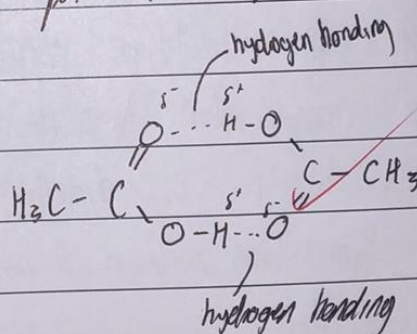 hydrogen bonding
δ- δ+
O --- H - O
C - CH3
H3C - C
δ+ δ-
O - H --- O
hydrogen bonding